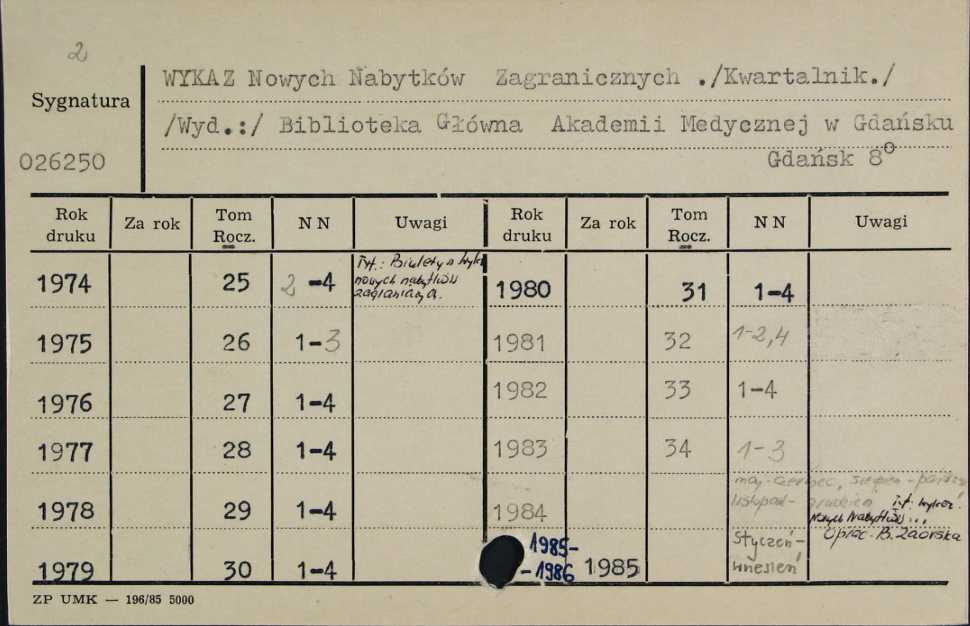 2
WYKAZ Nowych Nabytków Zagranicznych ./Kwartalnik./
Sygnatura
/Wyd.:/ Biblioteka Główna Akademii Medycznej w Gdańsku
026250
Gdańsk 8°
Rok druku Za rok Tom Rocz. N N Uwagi Rok druku Za rok Tom Rocz. N N Uwagi
1974 25 2 -4 Tyt.: Biuletyn
nowych nabytków
1980 31 1-4
1975 26 1-3 1981 32 1-2,4
1976 27 1-4 1982 33 1-4
1977 28 1-4 1983 34 1-3
1978 29 1-4 1984 maj-czerwiec, sierpień-
listopad- tyt.
Nowych Nabytków...
oprac. B. Zaorska
1979 30 1-4 1985-
-1986 1985 Styczeń-
wrzesień
ZP UMK — 196/85 5000